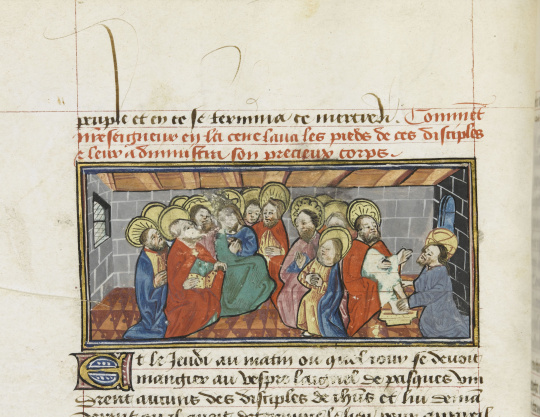 peuple et en ce se termina ce mercredi. Comment
nreseigneur en la cene laua les pieds de ces disciples
& leur administra son precieux corps.
Et le Jeudi au matin ou quel iour se deuoit
mangier au vespre laignel de pasques vin
drent aucuns des disciples de ihus et lui deman